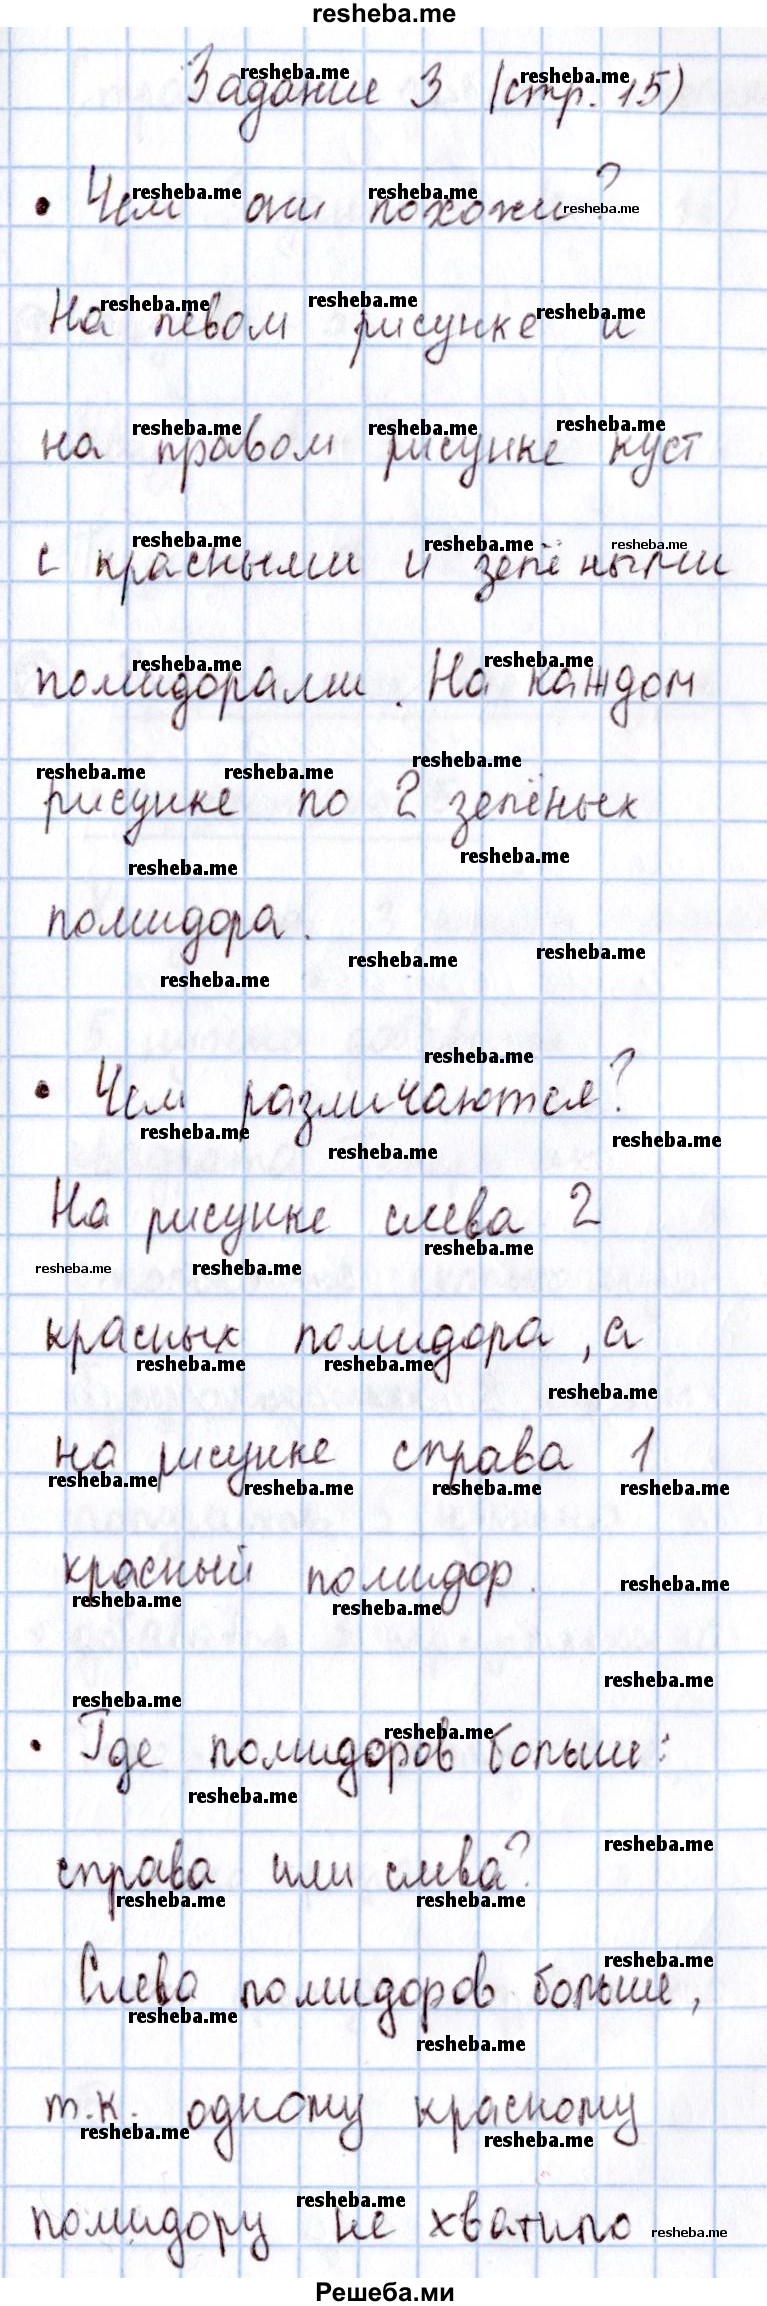 resheba.me
Задание 3 (стр. 15)
• Чем они похожи?
На левом рисунке и
на правом рисунке куст
с красными и зелёными
помидорами. На каждом
рисунке по 2 зелёных
помидора.
• Чем различаются?
На рисунке слева 2
красных помидора, а
на рисунке справа 1
красный помидор.
• Где помидоров больше:
справа или слева?
Слева помидоров больше,
т.к. одному красному
помидору не хватило
Решеба.ми